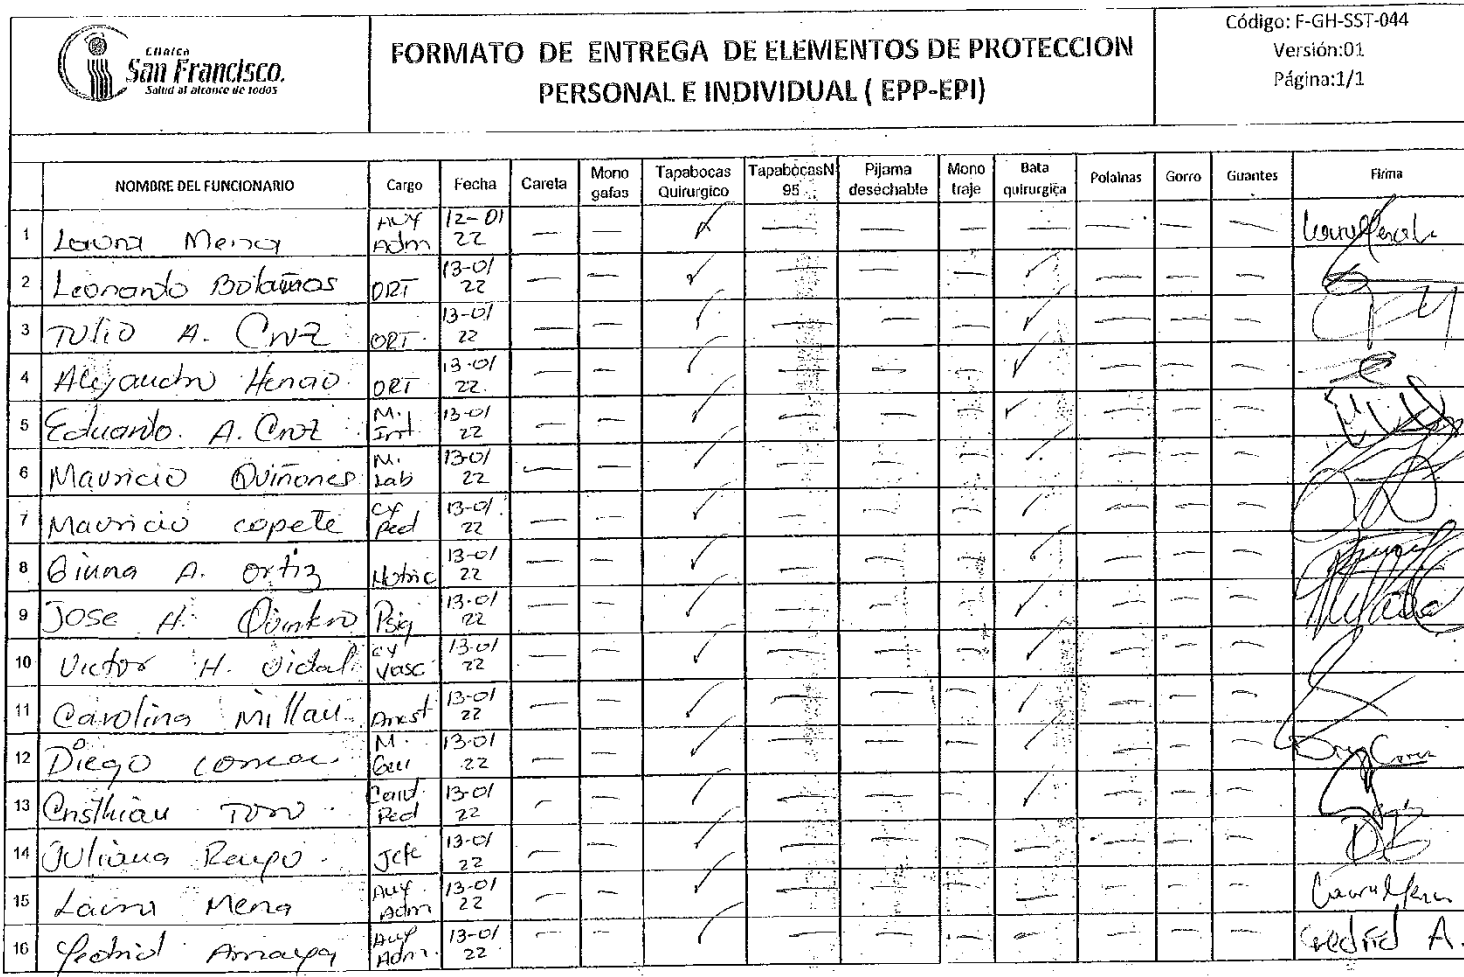 CLINICA
San Francisco.
Salud al alcance de todos
FORMATO DE ENTREGA DE ELEMENTOS DE PROTECCION
PERSONAL E INDIVIDUAL ( EPP-EPI)
Código: F-GH-SST-044
Versión:01
Página:1/1
NOMBRE DEL FUNCIONARIO Cargo Fecha Careta Mono gafas Tapabocas Quirurgico TapabocasN 95 Pijama desechable Mono traje Bata quirurgica Polainas Gorro Guantes Firma
1 Laura Mena Aux Adm 12-01 22 — — ✓ — — — — — — —
2 Leonardo Bolaños ORT 13-01 22 — — ✓ — — — ✓ — — —
3 Tulio A. Cruz ORT. 13-01 22 — — ✓ — — — ✓ — — —
4 Alejandro Henao. ORT 13-01 22. — — ✓ — — — ✓ — — —
5 Eduardo. A. Cruz M. Int 13-01 22 — — ✓ — — — ✓ — — —
6 Mauricio Quiñones M. Lab 13-01 22 — — ✓ — — — ✓ — — —
7 Mauricio copete Cx Ped 13-01. 22 — — ✓ — — — ✓ — — —
8 A. Ortiz 13-01 22 — — ✓ — — — ✓ — — —
9 Jose H. Quintero Psiq 13-01 22 — — ✓ — — — ✓ — — —
10 Victor H. Vidal Cx Vasc 13-01 22 — — ✓ — — — ✓ — — —
11 Carolina Millan. Anest 13-01 22 — — ✓ — — — ✓ — — —
12 Diego M. Gen 13-01 22 — — ✓ — — — ✓ — — —
13 Cristhian Toro. Card. Ped 13-01 22 — — ✓ — — — ✓ — — —
14 Juliana Jefe 13-01 22 — — ✓ — — — — — — —
15 Laura Mena Aux Adm 13-01 22 — — ✓ — — — — — — —
16 Amaya Aux Adm. 13-01 22 — — ✓ — — — — — — — A.